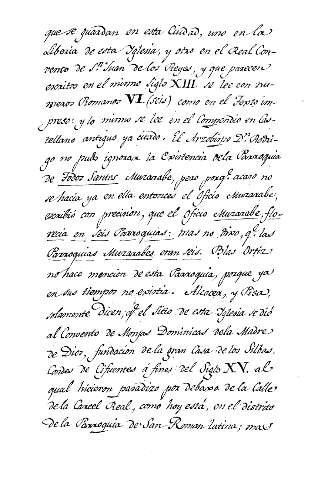 que se guardan en esta Ciudad, uno en la
Libreria de esta Yglesia, y otro en el Real Con-
vento de Sn. Juan de los Reyes, y que parecen
escritos en el mismo Siglo XIII. se lee con nu-
meros Romanos VI (seis) como en el Texto im-
preso: y lo mismo se lee en el Compendio en Cas-
tellano antiguo ya citado. El Arzobispo Dn. Rodri-
go no pudo ignorar la Existencia de la Parroquia
de Todos Santos Muzarabe, pero porqe. acaso no
se hacia ya en ella entonces el oficio Muzarabe,
escribió con precision, que el Oficio Muzarabe flo-
recia en seis Parroquias: mas no dixo, qe. las
Parroquias Muzarabes eran seis. Blas Ortiz
no hace mencion de esta Parroquia, porque ya
en sus tiempos no existia. Alcocer, y Pisa,
solamente dicen, qe. el sitio de esta Yglesia se dió
al Convento de Monjas Dominicas de la Madre
de Dios, fundacion de la gran Casa de los Silbas,
Condes de Cifuentes á fines del Siglo XV. al
qual hicieron paradizo por debaxo de la Calle
de la Carcel Real, como hoy está, en el distrito
de la Parroquia de San Roman latina; mas